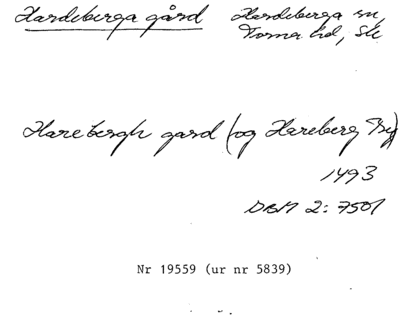 Hardeberga gård Hardeberga sn,
Torna hd, Sk
Harebergh gard (og Hareberg By)
1493
DRM 2: 7501
Nr 19559 (ur nr 5839)